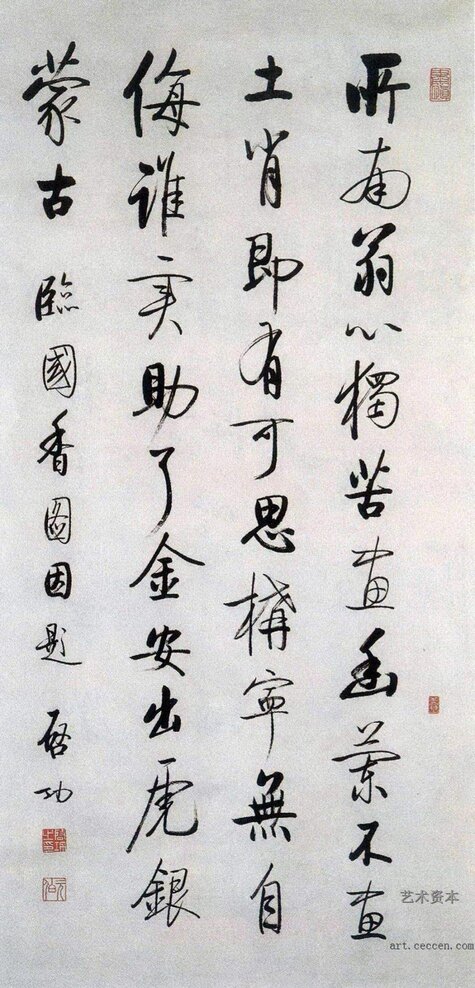 所南翁心獨苦畫幽蘭不畫
土肖即有可思構寧無自
侮誰実助了金安出虎銀
蒙古 臨國香圖因題 啓功
艺术资本
art.ceccen.com